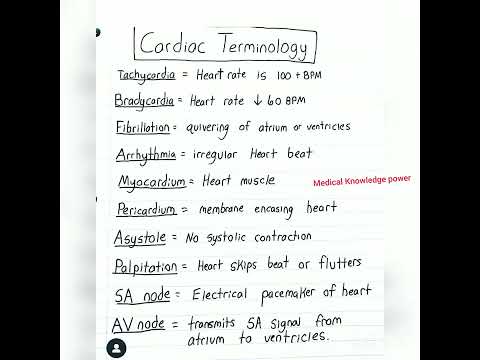 Cardiac Terminology
Tachycardia = Heart rate is 100 + BPM
Bradycardia = Heart rate ↓ 60 BPM
Fibrillation = quivering of atrium or ventricles
Arrhythmia = irregular Heart beat
Myocardium = Heart muscle
Medical Knowledge power
Pericardium = membrane encasing heart
Asystole = No systolic contraction
Palpitation = Heart skips beat or flutters
SA node = Electrical pacemaker of heart
AV node = transmits SA signal from
atrium to ventricles.